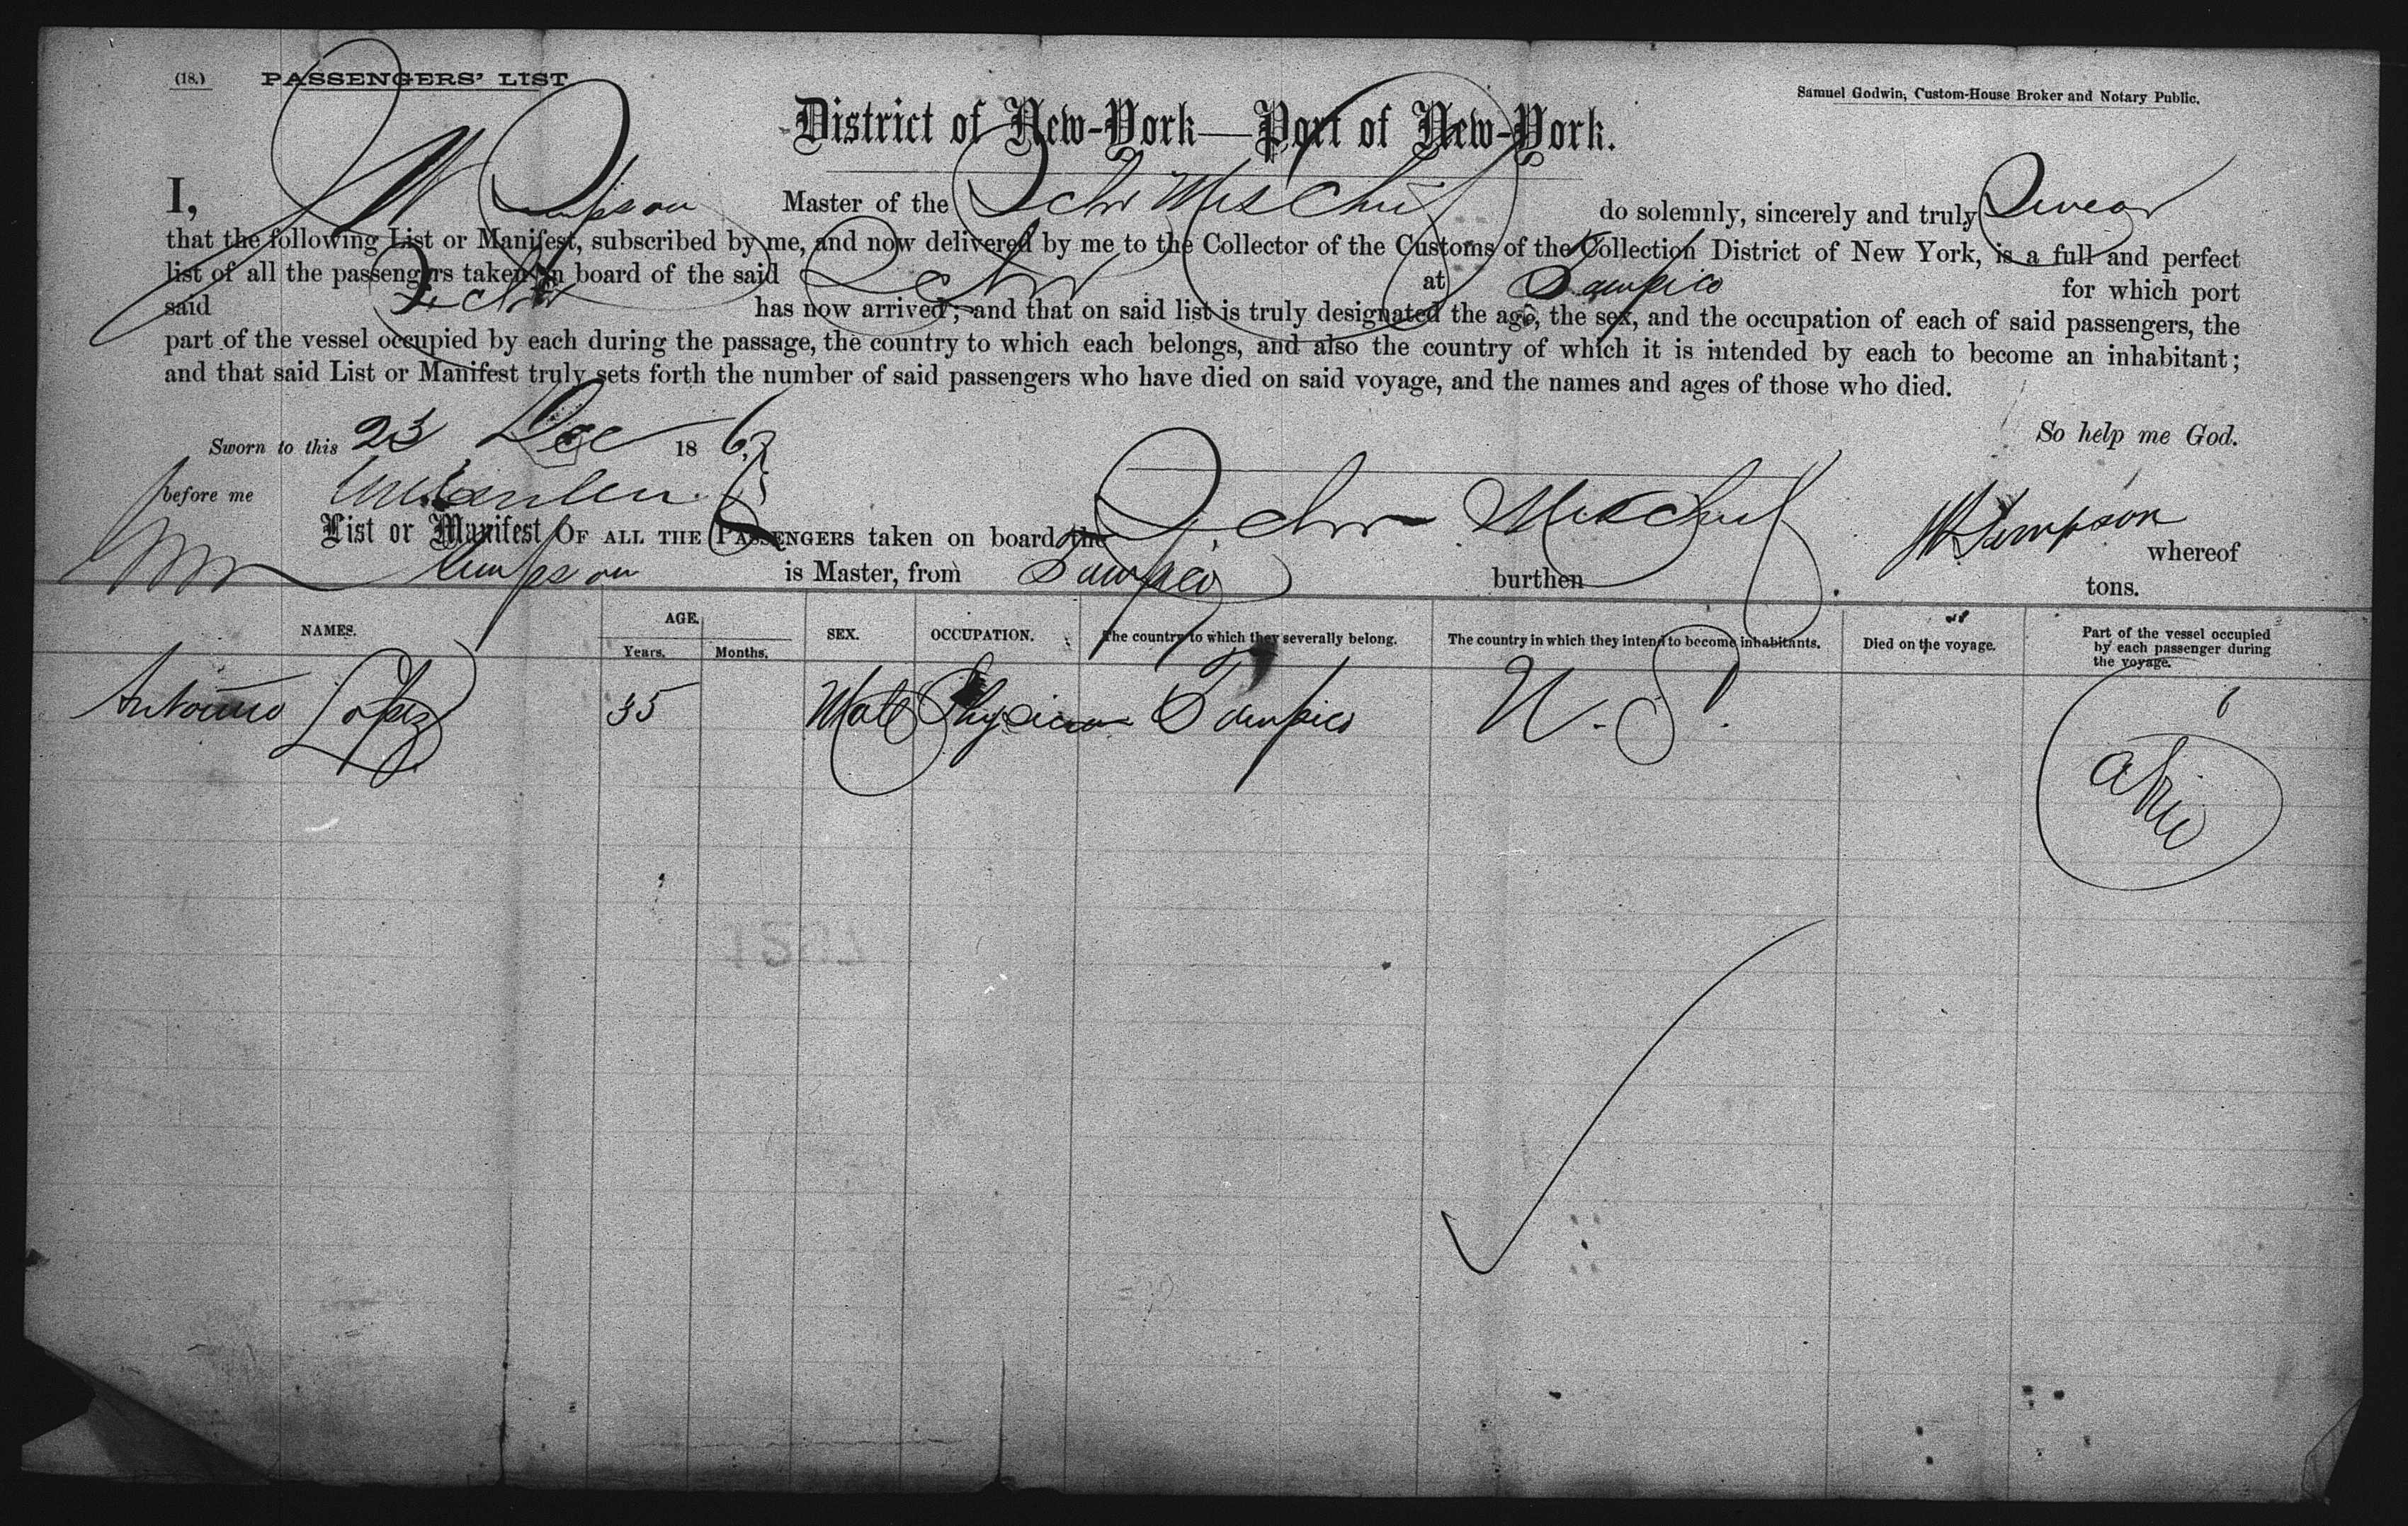 (18.) PASSENGERS' LIST
Samuel Godwin, Custom-House Broker and Notary Public.
District of New-York—Port of New-York.
I, W Simpson Master of the Schr Mischief do solemnly, sincerely and truly Swear
that the following List or Manifest, subscribed by me, and now delivered by me to the Collector of the Customs of the Collection District of New York, is a full and perfect
list of all the passengers taken on board of the said Schr at Tampico for which port
said Schr has now arrived; and that on said list is truly designated the age, the sex, and the occupation of each of said passengers, the
part of the vessel occupied by each during the passage, the country to which each belongs, and also the country of which it is intended by each to become an inhabitant;
and that said List or Manifest truly sets forth the number of said passengers who have died on said voyage, and the names and ages of those who died.
So help me God.
Sworn to this 23 Dec 186
before me
W Simpson
List or Manifest OF ALL THE PASSENGERS taken on board the Schr Mischief whereof
Simpson is Master, from Tampico burthen tons.
NAMES. AGE. Years. Months. SEX. OCCUPATION. The country to which they severally belong. The country in which they intend to become inhabitants. Died on the voyage. Part of the vessel occupied by each passenger during the voyage.
Antonio Lopez 35 Male Physician Tampico U.S.